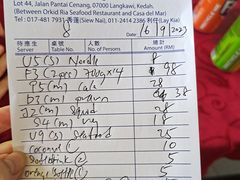 Lot 44, Jalan Pantai Cenang, 07000 Langkawi, Kedah.
(Between Orkid Ria Seafood Restaurant and Casa del Mar)
Tel: 017-481 7931 香蓮 (Siew Nai), 011-2414 2386 利佳 (Lay Kia)
8 16/9/2023
待應生 桌號 人數 总計
Server Table No. No. of Persons Amount (RM)
U5(S) Noodle 8
F3 (2pcs) 700g×14 98
P5(m) 28
D2(m) prawn 38
J2(m) Squid 28
S4(m) veg 18
U9(S) Seafood 25
Coconut (1) 10
Softdrink (1) 5
5